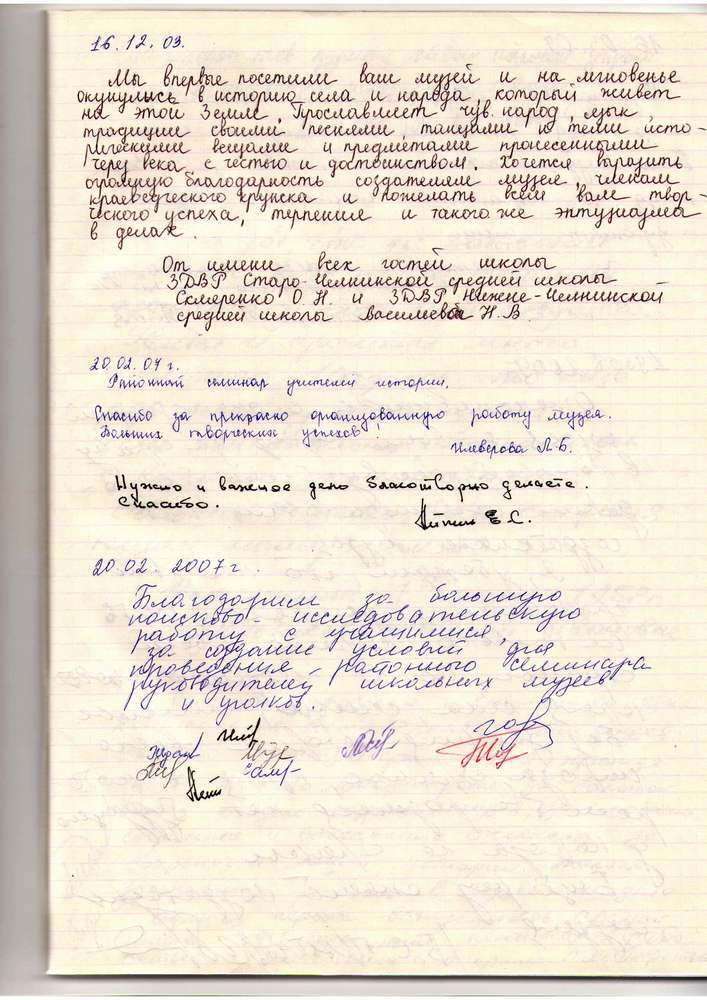 16.12.03.
Мы впервые посетили ваш музей и на мгновенье
окунулись в историю села и народа, который живет
на этой Земле. Прославляет чув. народ, язык,
традиции своими песнями, танцами и теми исто-
рическими вещами и предметами пронесенными
через века с честью и достоинством. Хочется выразить
огромную благодарность создателям музея, членам
краеведческого кружка и пожелать всем вам твор-
ческого успеха, терпения и такого же энтузиазма
в делах.
От имени всех гостей школы
ЗДВР Старо-Челнинской средней школы
Скляренко О.Н. и ЗДВР Нижне-Челнинской
средней школы Васильева Н.В.
20.02.07 г.
Районный семинар учителей истории.
Спасибо за прекрасно организованную работу музея.
Больших творческих успехов!
Л.Б.
Нужно и важное дело благотворно делаете.
Спасибо.
Е.С.
20.02.2007 г.
Благодарим за большую
поисково-исследовательскую
работу с учащимися,
за создание условий для
проведения районного семинара
руководителей школьных музеев
и уголков.